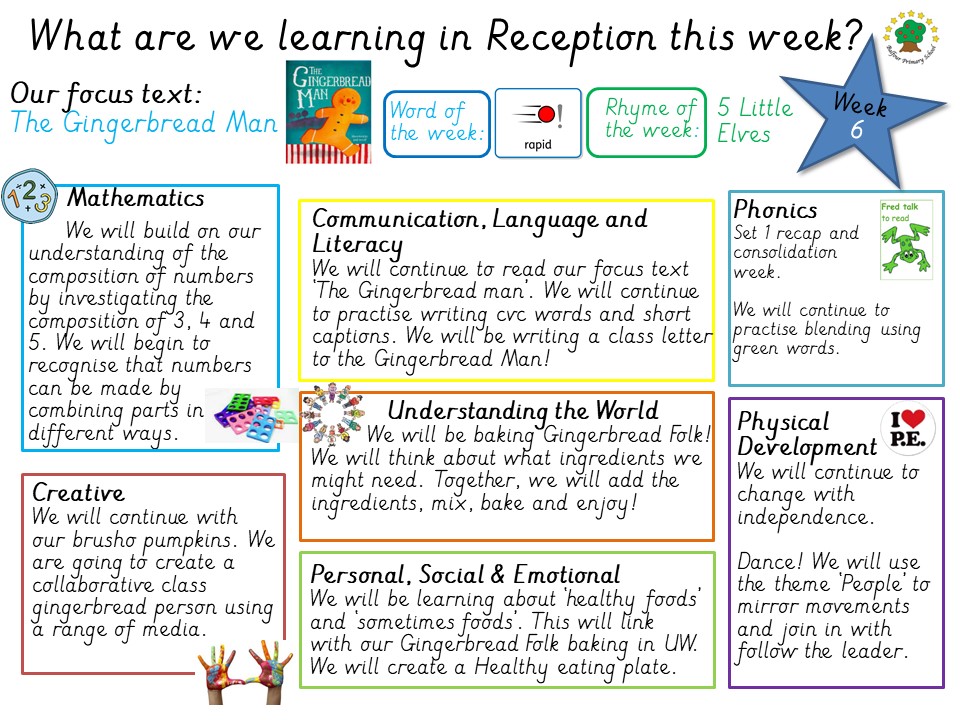 What are we learning in Reception this week?
Balfour Primary School
Our focus text:
The Gingerbread Man
THE
GINGERBREAD
MAN
Word of
the week:
!
rapid
Rhyme of
the week:
5 Little
Elves
Week
6
1 2 3
Mathematics
We will build on our
understanding of the
composition of numbers
by investigating the
composition of 3, 4 and
5. We will begin to
recognise that numbers
can be made by
combining parts in
different ways.
Communication, Language and
Literacy
We will continue to read our focus text
'The Gingerbread man'. We will continue
to practise writing cvc words and short
captions. We will be writing a class letter
to the Gingerbread Man!
Phonics
Set 1 recap and
consolidation
week.
We will continue to
practise blending using
green words.
Fred talk
to read
Understanding the World
We will be baking Gingerbread Folk!
We will think about what ingredients we
might need. Together, we will add the
ingredients, mix, bake and enjoy!
Physical
Development
We will continue to
change with
independence.
Dance! We will use
the theme 'People' to
mirror movements
and join in with
follow the leader.
I ♥
P.E.
Creative
We will continue with
our brusho pumpkins. We
are going to create a
collaborative class
gingerbread person using
a range of media.
Personal, Social & Emotional
We will be learning about 'healthy foods'
and 'sometimes foods'. This will link
with our Gingerbread Folk baking in UW.
We will create a Healthy eating plate.